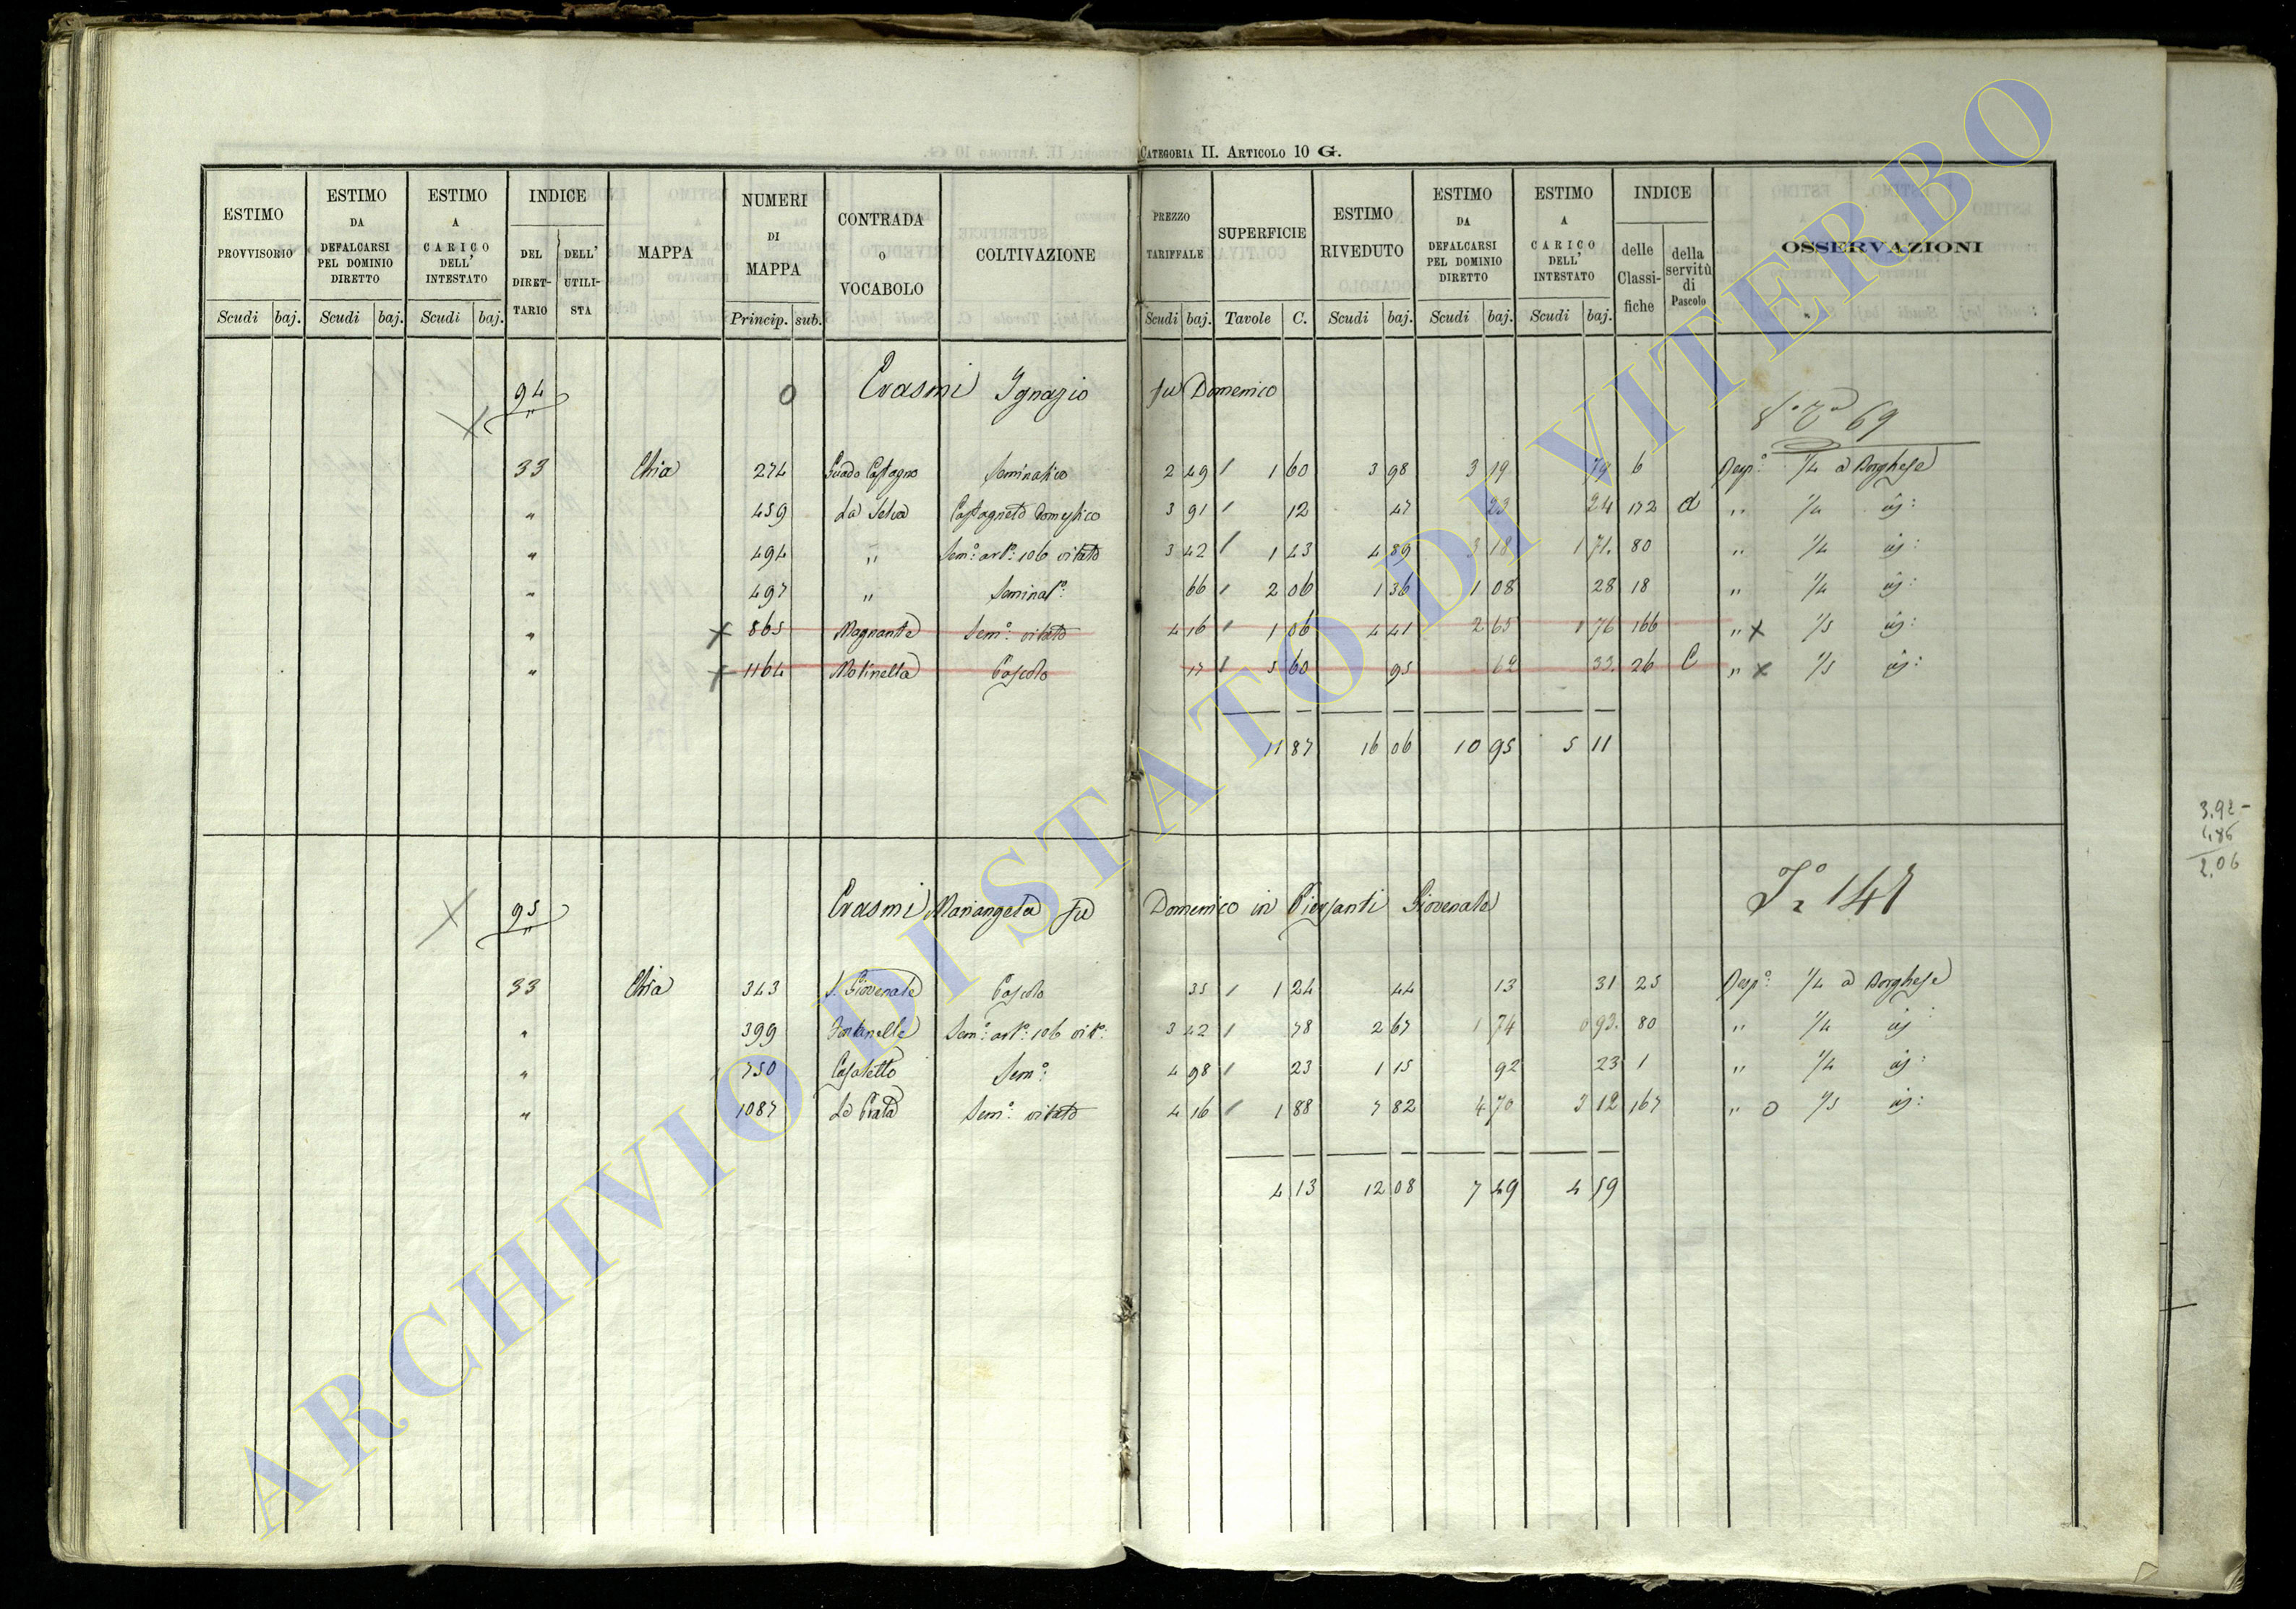 CATEGORIA II. ARTICOLO 10 G.
ESTIMO PROVVISORIO Scudi baj.
ESTIMO DA DEFALCARSI PEL DOMINIO DIRETTO Scudi baj.
ESTIMO A CARICO DELL' INTESTATO Scudi baj.
INDICE DEL DIRETTARIO DELL' UTILISTA
MAPPA
NUMERI DI MAPPA Princip. sub.
CONTRADA O VOCABOLO
COLTIVAZIONE
PREZZO TARIFFALE Scudi baj.
SUPERFICIE Tavole C.
ESTIMO RIVEDUTO Scudi baj.
ESTIMO DA DEFALCARSI PEL DOMINIO DIRETTO Scudi baj.
ESTIMO A CARICO DELL' INTESTATO Scudi baj.
INDICE delle Classifiche della servitù di Pascolo
OSSERVAZIONI
94 O Erasmi Ignazio fu Domenico
69
33 Chia 274 Guado Castagno Seminativo 2 49 1 60 3 98 3 19 79 6 Risp.° 1/4 a Borghese
" 459 La Selva Castagneto Domestico 3 91 12 47 23 24 172 d " 1/4 "
" 494 " Sem.° art.° 106 vitato 3 42 1 43 4 89 3 18 1 71 80 " 1/4 "
" 497 " Seminat.° 66 2 06 1 36 1 08 28 18 " 1/4 "
" x 865 Magnante Sem.° vitato 4 16 1 06 4 41 2 65 1 76 166 " x 1/5 "
" x 1164 Molinella Pascolo 17 5 60 95 62 33 26 C " x 1/5 "
11 87 16 06 10 95 5 11
95 Erasmi Mariangela fu Domenico in Piersanti Giovenale
147
33 Chia 343 S. Giovenale Pascolo 35 1 24 44 13 31 25 Risp.° 1/4 a Borghese
" 399 Fontanelle Sem.° art.° 106 vit.° 3 42 78 2 67 1 74 0 93 80 " 1/4 "
" 750 Casaletto Sem.° 4 98 23 1 15 92 23 1 " 1/4 "
" 1087 Le Prata Sem.° vitato 4 16 1 88 7 82 4 70 3 12 167 " o 1/5 "
4 13 12 08 7 49 4 59
3.92
1,86
2,06
ARCHIVIO DI STATO DI VITERBO